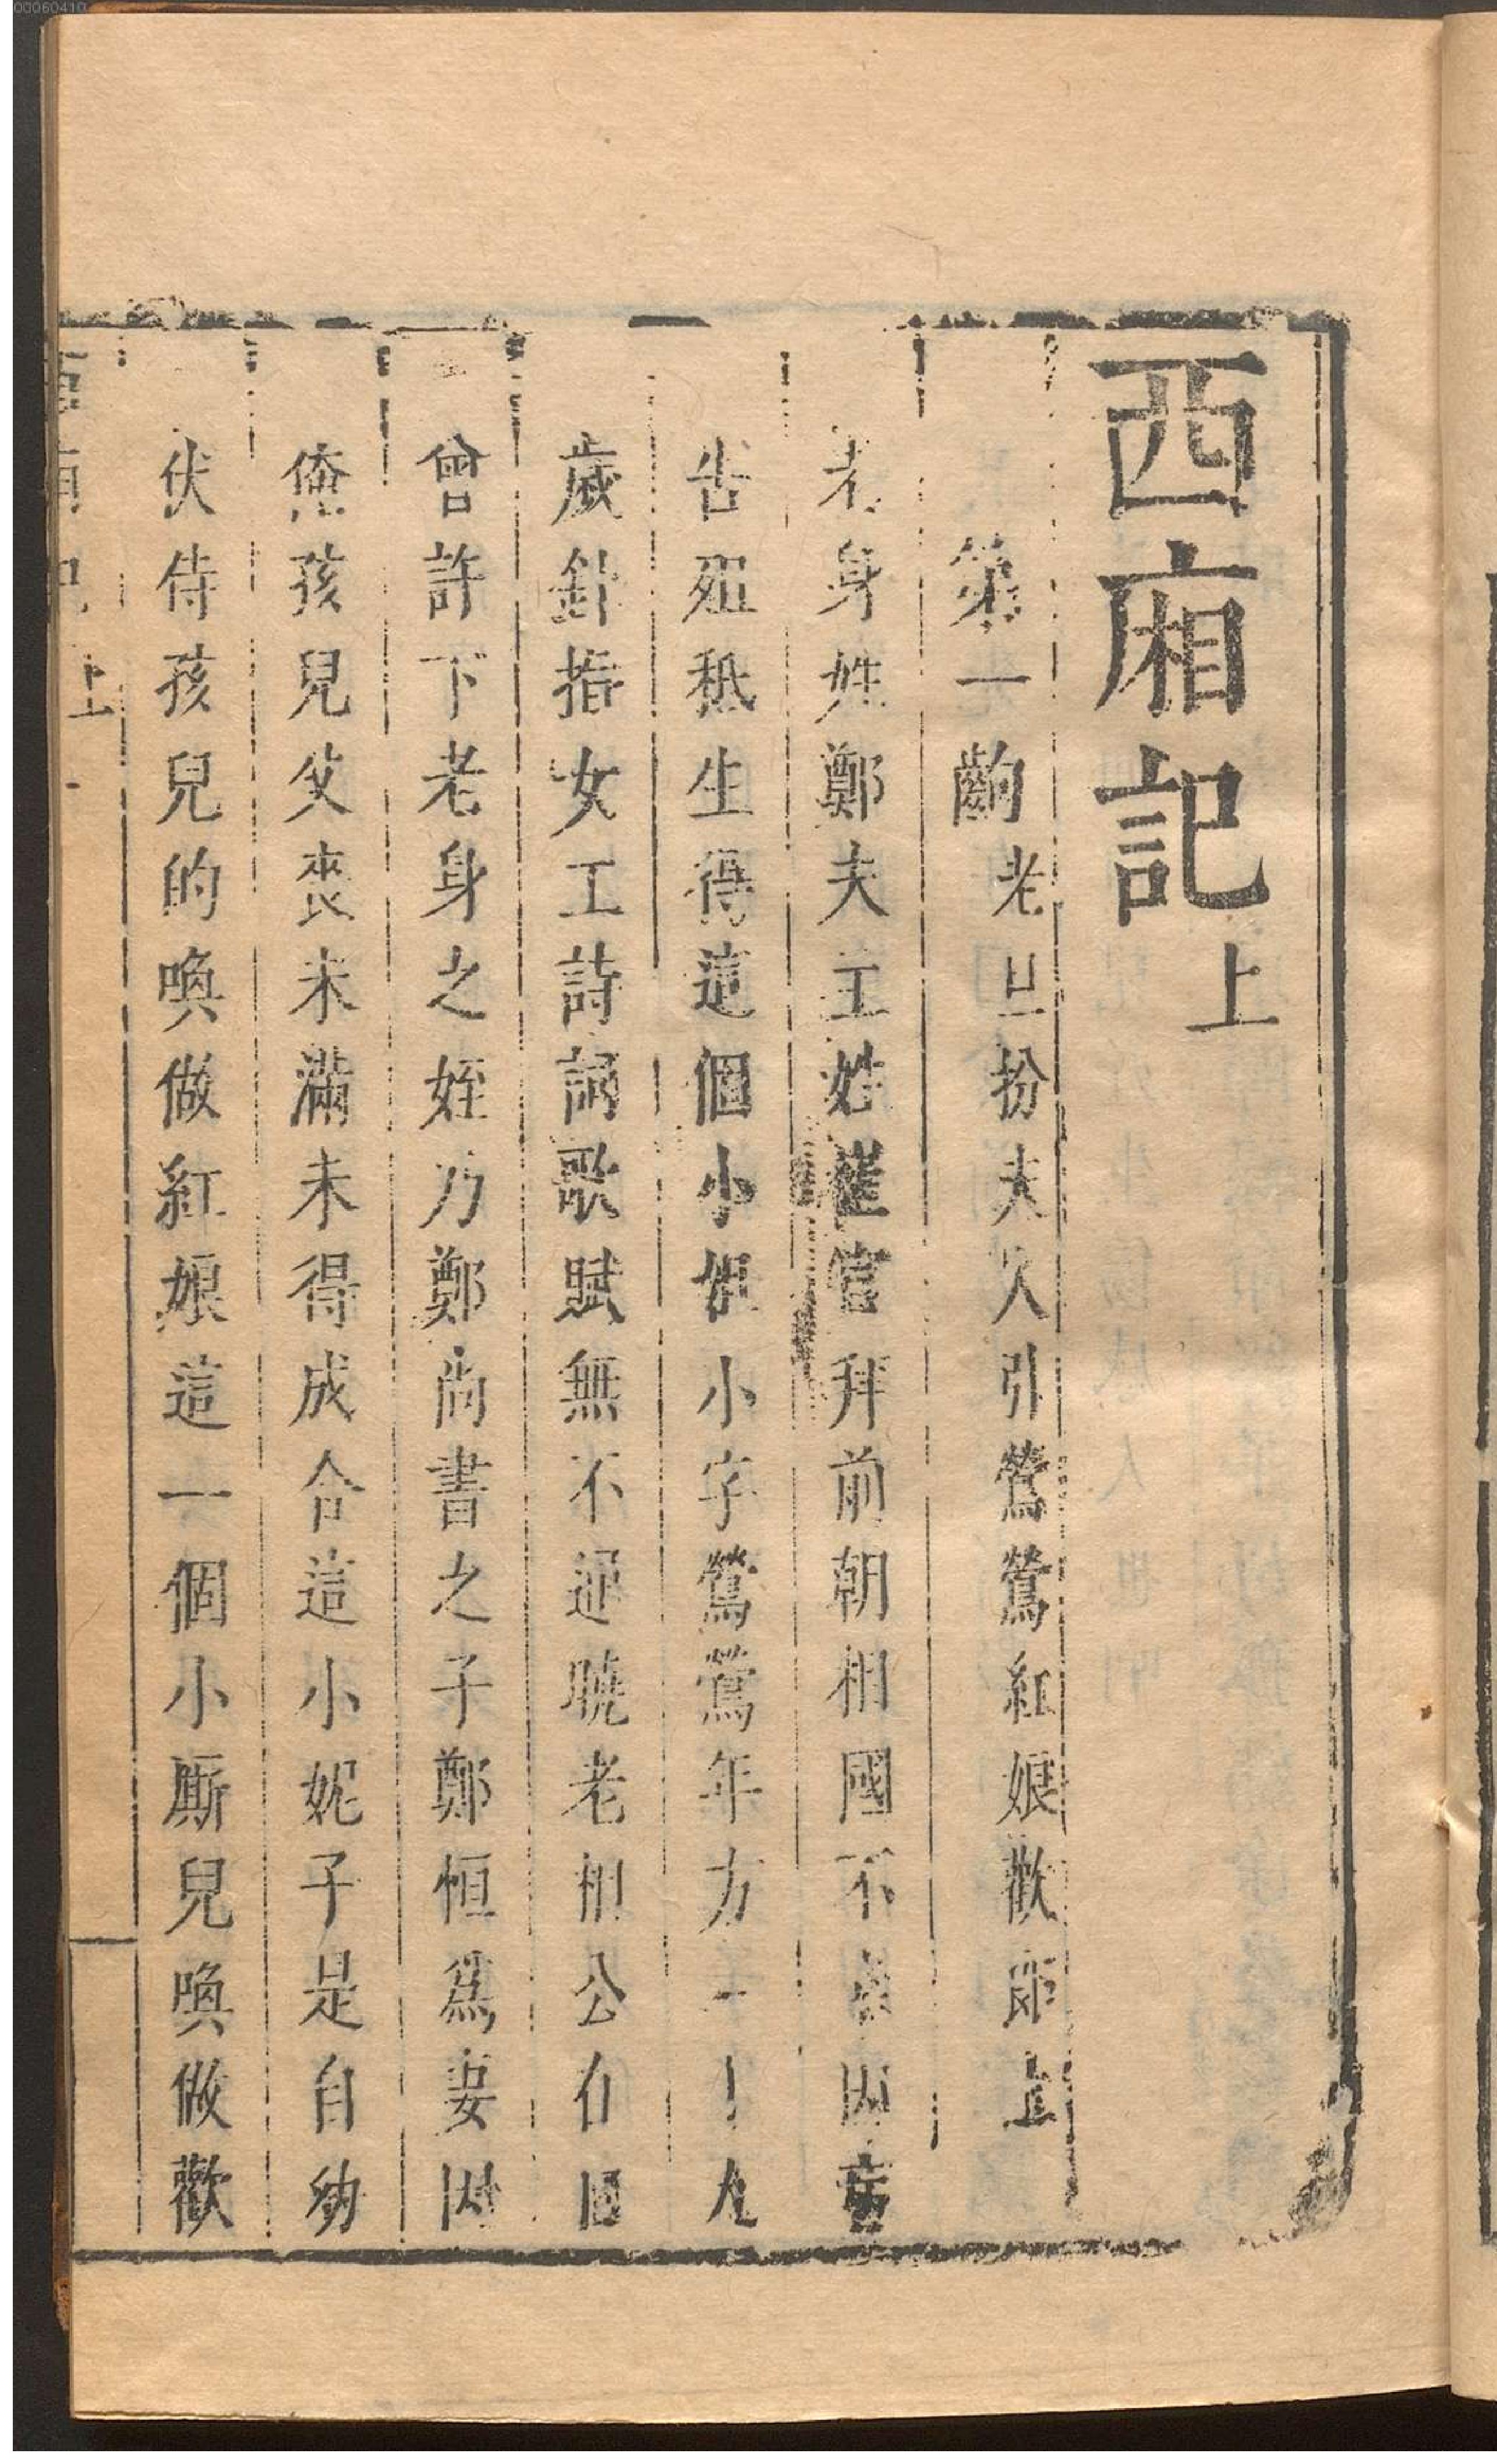 00060410
西廂記上
第一齣 老旦扮夫人引鶯鶯紅娘歡郎上
老身姓鄭夫主姓崔官拜前朝相國不幸因病
告殂秪生得這個小姐小字鶯鶯年方一十九
歲針指女工詩詞歌賦無不通曉老相公在日
曾許下老身之姪乃鄭尚書之子鄭恒爲妻因
俺孩兒父喪未滿未得成合這小妮子是自幼
伏侍孩兒的喚做紅娘這一個小厮兒喚做歡
上